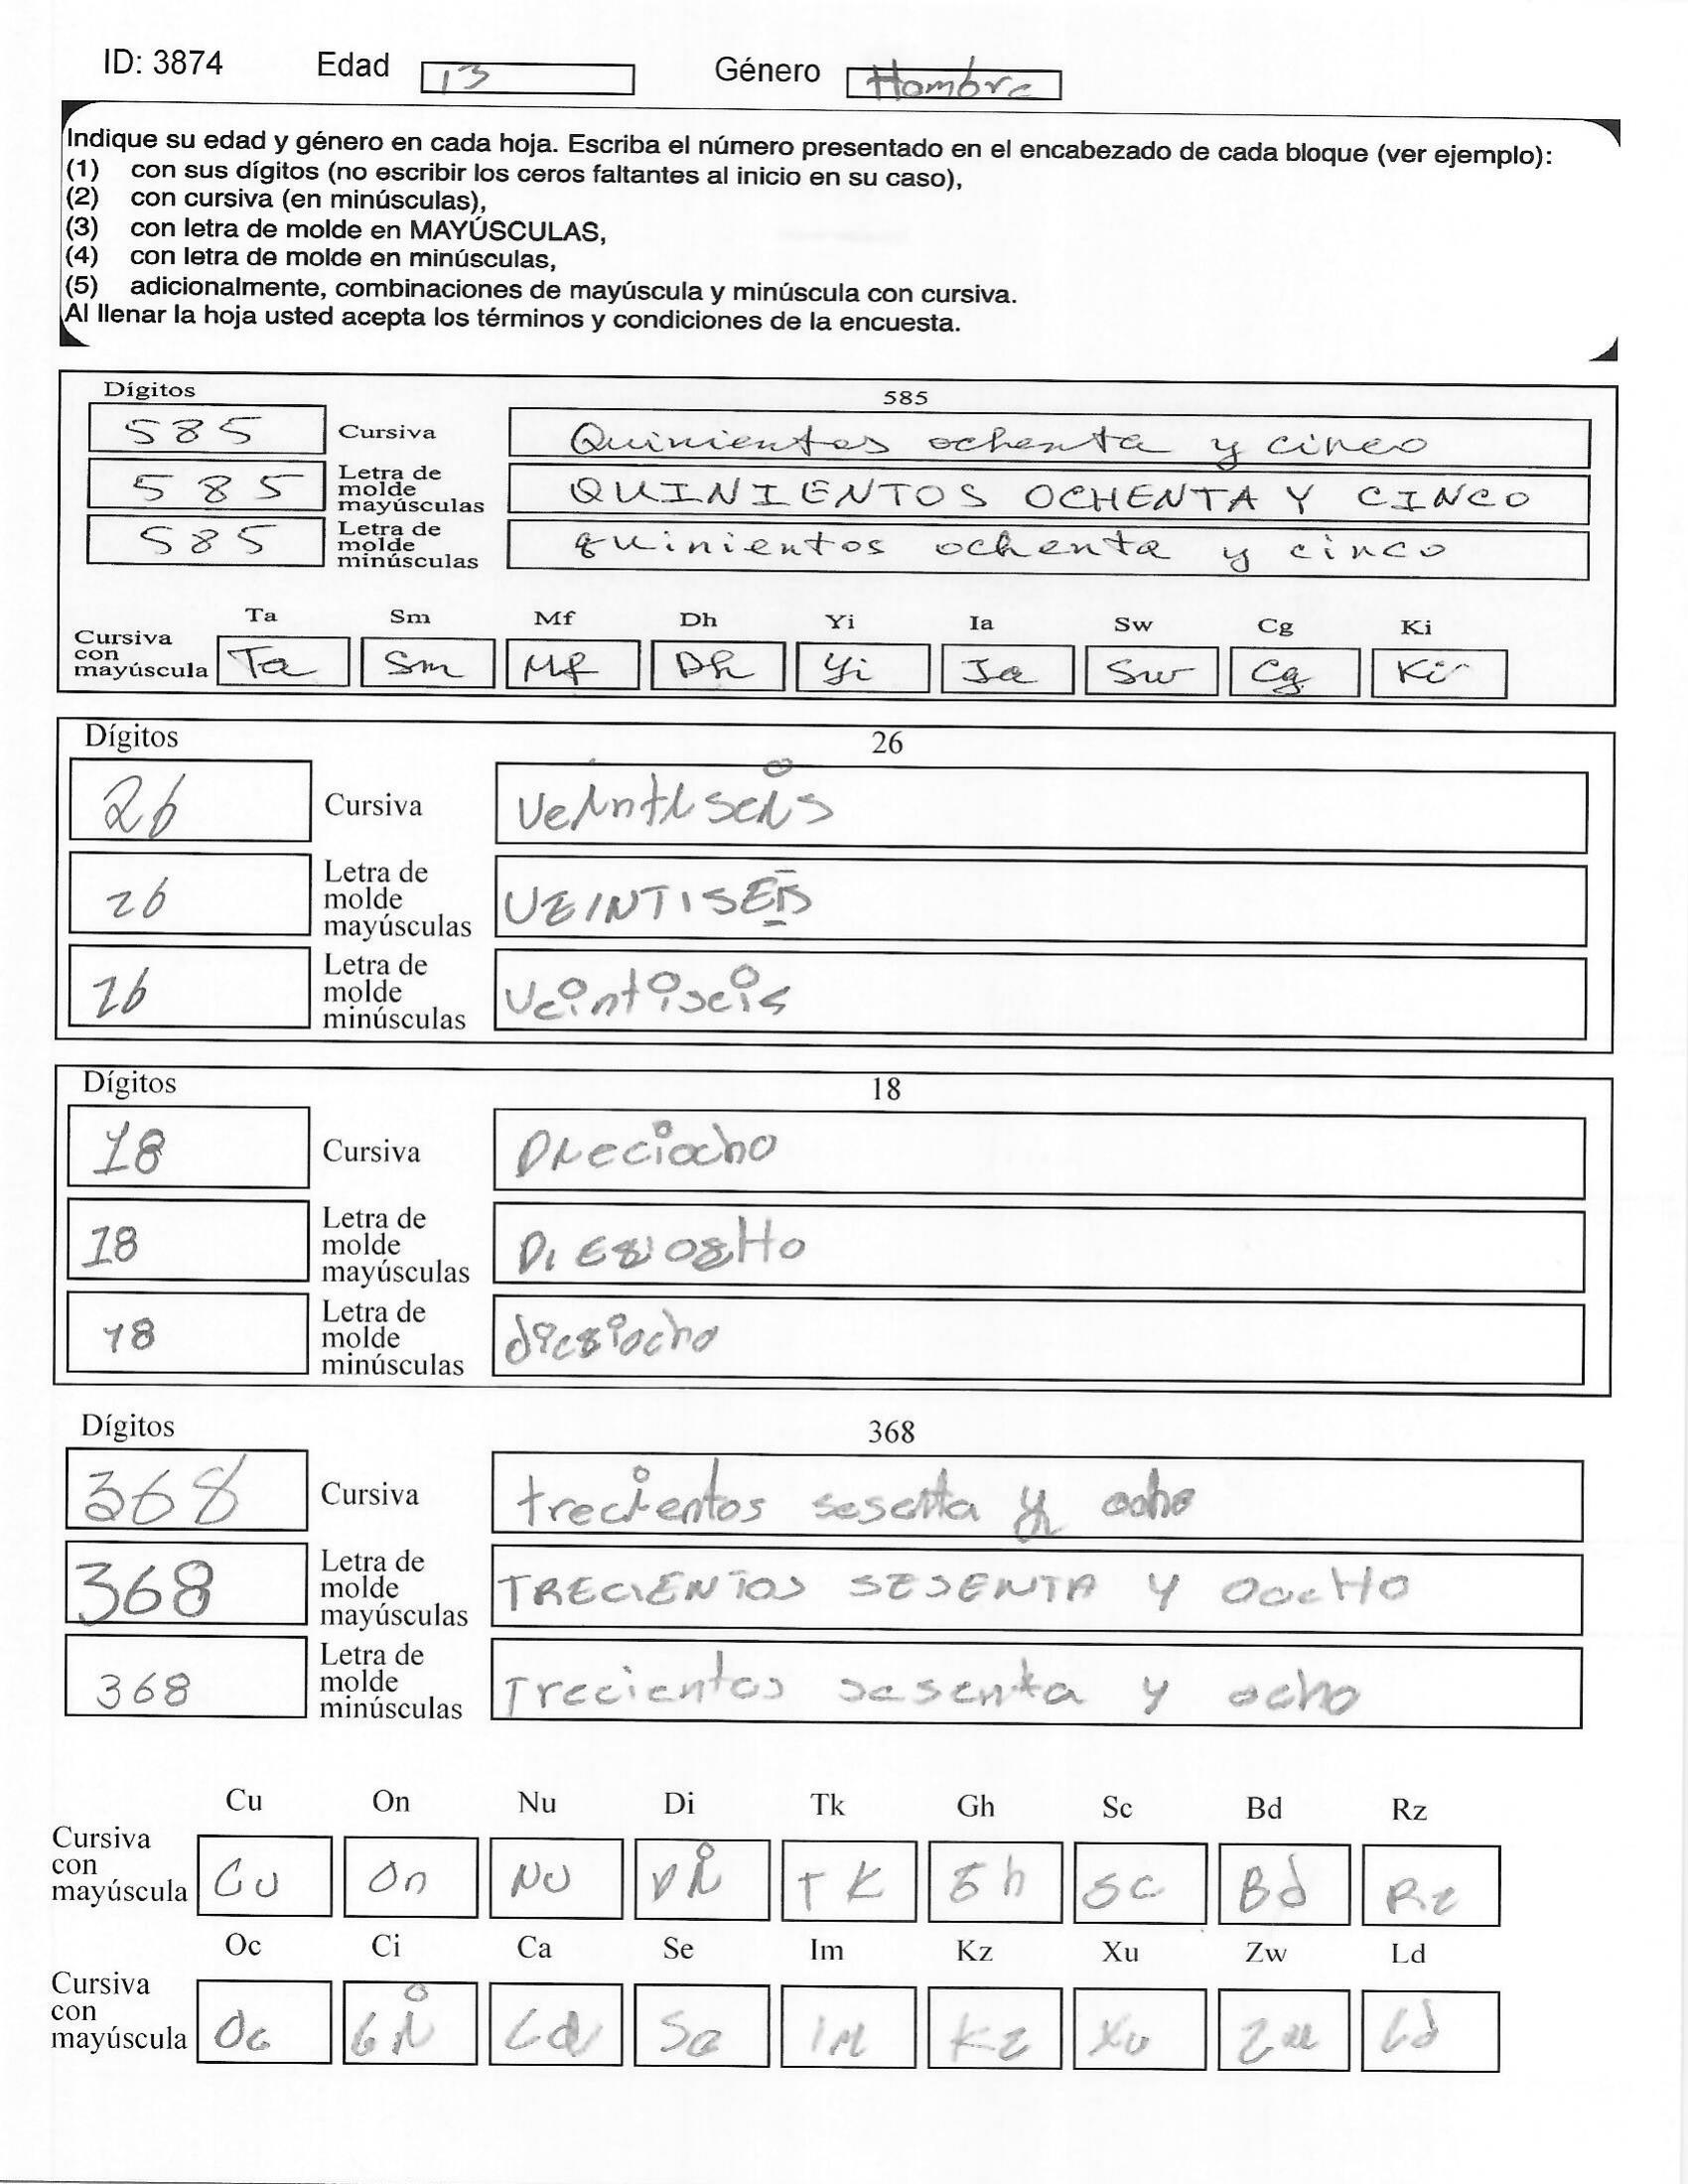 ID: 3874 Edad 13 Género Hombre
Indique su edad y género en cada hoja. Escriba el número presentado en el encabezado de cada bloque (ver ejemplo):
(1) con sus dígitos (no escribir los ceros faltantes al inicio en su caso),
(2) con cursiva (en minúsculas),
(3) con letra de molde en MAYÚSCULAS,
(4) con letra de molde en minúsculas,
(5) adicionalmente, combinaciones de mayúscula y minúscula con cursiva.
Al llenar la hoja usted acepta los términos y condiciones de la encuesta.
Dígitos 585
585 Cursiva Quinientos ochenta y cinco
585 Letra de molde mayúsculas QUINIENTOS OCHENTA Y CINCO
585 Letra de molde minúsculas quinientos ochenta y cinco
Ta Sm Mf Dh Yi Ia Sw Cg Ki
Cursiva con mayúscula Ta Sm Mf Dh Yi Ia Sw Cg Ki
Dígitos 26
26 Cursiva Veintiseis
26 Letra de molde mayúsculas VEINTISEIS
26 Letra de molde minúsculas veintiseis
Dígitos 18
18 Cursiva Dieciocho
18 Letra de molde mayúsculas DIECIOCHO
18 Letra de molde minúsculas dieciocho
Dígitos 368
368 Cursiva trecientos sesenta y ocho
368 Letra de molde mayúsculas TRECIENTOS SESENTA Y OCHO
368 Letra de molde minúsculas Trecientos sesenta y ocho
Cu On Nu Di Tk Gh Sc Bd Rz
Cursiva con mayúscula Cu On Nu Di TK Gh Sc Bd Rz
Oc Ci Ca Se Im Kz Xu Zw Ld
Cursiva con mayúscula Oc Ci Ca Se Im Kz Xu Zw Ld